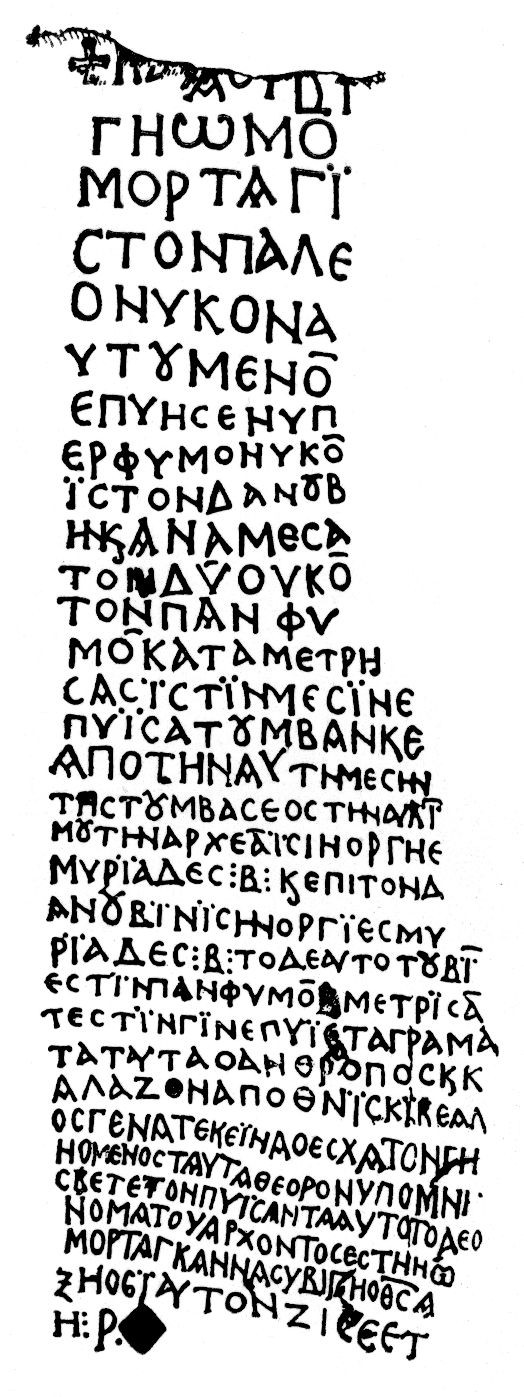 ΓΗѠΜΟ̅
ΜΟΡΤΑΓΪ
CΤΟΝΠΑΛΕ
ΟΝΥΚΟΝΑ
ΥΤȢΜΕΝΟ̅
ΕΠΥΗCΕΝΥΠ
ΕΡΦΥΜΟΝΥΚΟ̅
ΪCΤΟΝΔΑΝȢΒ
ΗΝϗΑΝΑΜΕCΑ
ΤΟΝΔΥΟΥΚΟ̅
ΤΟΝΠΑΝΦΥ
ΜΟ̅ΚΑΤΑΜΕΤΡΗ
CΑCΪCΤΪΝΜΕCΪΝΕ
ΠΥΪCΑΤȢΜΒΑΝΚΕ
ΑΠΟΤΗΝΑΥΤΗΝΜΕCΗΝ
ΤΗCΤȢΜΒΑCΕΟCΤΗΝΑΥΛΪ
ΜȢΤΗΝΑΡΧΕΑ̅ΪCΙΝΟΡΓΗΕ
ΜΥΡΪΑΔΕC⁝Β⁝ϗΕΠΙΤΟΝΔ
ΑΝȢΒΪΝΪCΗΝΟΡΓΪΕCΜΥ
ΡΪΑΔΕC⁝Β⁝ΤΟΔΕΑΥΤΟΤȢΒΪ̅
ΕCΤΪΝΠΑΝΦΥΜΟ̅ϗΜΕΤΡΪCΑ̅
ΤΕCΤΪΝΓΪΝΕΠΥΪCΑΤΑΓΡΑΜΑ
ΤΑΤΑΥΤΑΟΑΝΘΡΟΠΟCϗΚ
ΑΛΑΖΟΝΑΠΟΘΝΪCΚΪΚΕΑΛ
ΟCΓΕΝΑΤΕΚΕΪΝΑΟΕCΧΑΤΟΝΓΗ
ΝΟΜΕΝΟCΤΑΥΤΑΘΕΟΡΟΝΥΠΟΜΝΙ
CΚΕΤΕΤΟΝΠΥΪCΑΝΤΑΑΥΤΟΤΟΔΕΟ
ΝΟΜΑΤΟΥΑΡΧΟΝΤΟCΕCΤΗΝѠ
ΜΟΡΤΑΓΚΑΝΝΑCΥΒΙΓΗΟΘ̅C̅Α
ΞΗΟCΪΑΥΤΟΝΖΙCΕΕΤ
Η⁝Ρ.